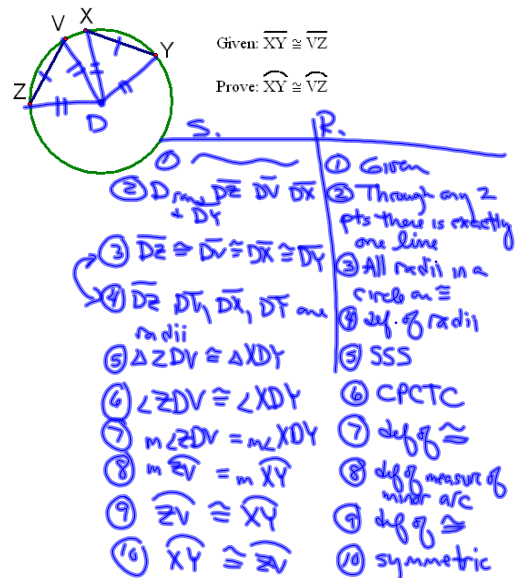 V X
Y
Z
D
Given: XY ≅ VZ
Prove: XY ≅ VZ
S. R.
① ① Given
② D DZ DV DX ② Through any 2
+ DY pts there is exactly
one line
③ DZ ≅ DV ≅ DX ≅ DY ③ All radii in a
circle are ≅
④ DZ, DV, DX, DY are ④ def. of radii
radii
⑤ △ZDV ≅ △XDY ⑤ SSS
⑥ ∠ZDV ≅ ∠XDY ⑥ CPCTC
⑦ m∠ZDV = m∠XDY ⑦ def of ≅
⑧ m ZV = m XY ⑧ def of measure of
minor arc
⑨ ZV ≅ XY ⑨ def of ≅
⑩ XY ≅ ZV ⑩ symmetric